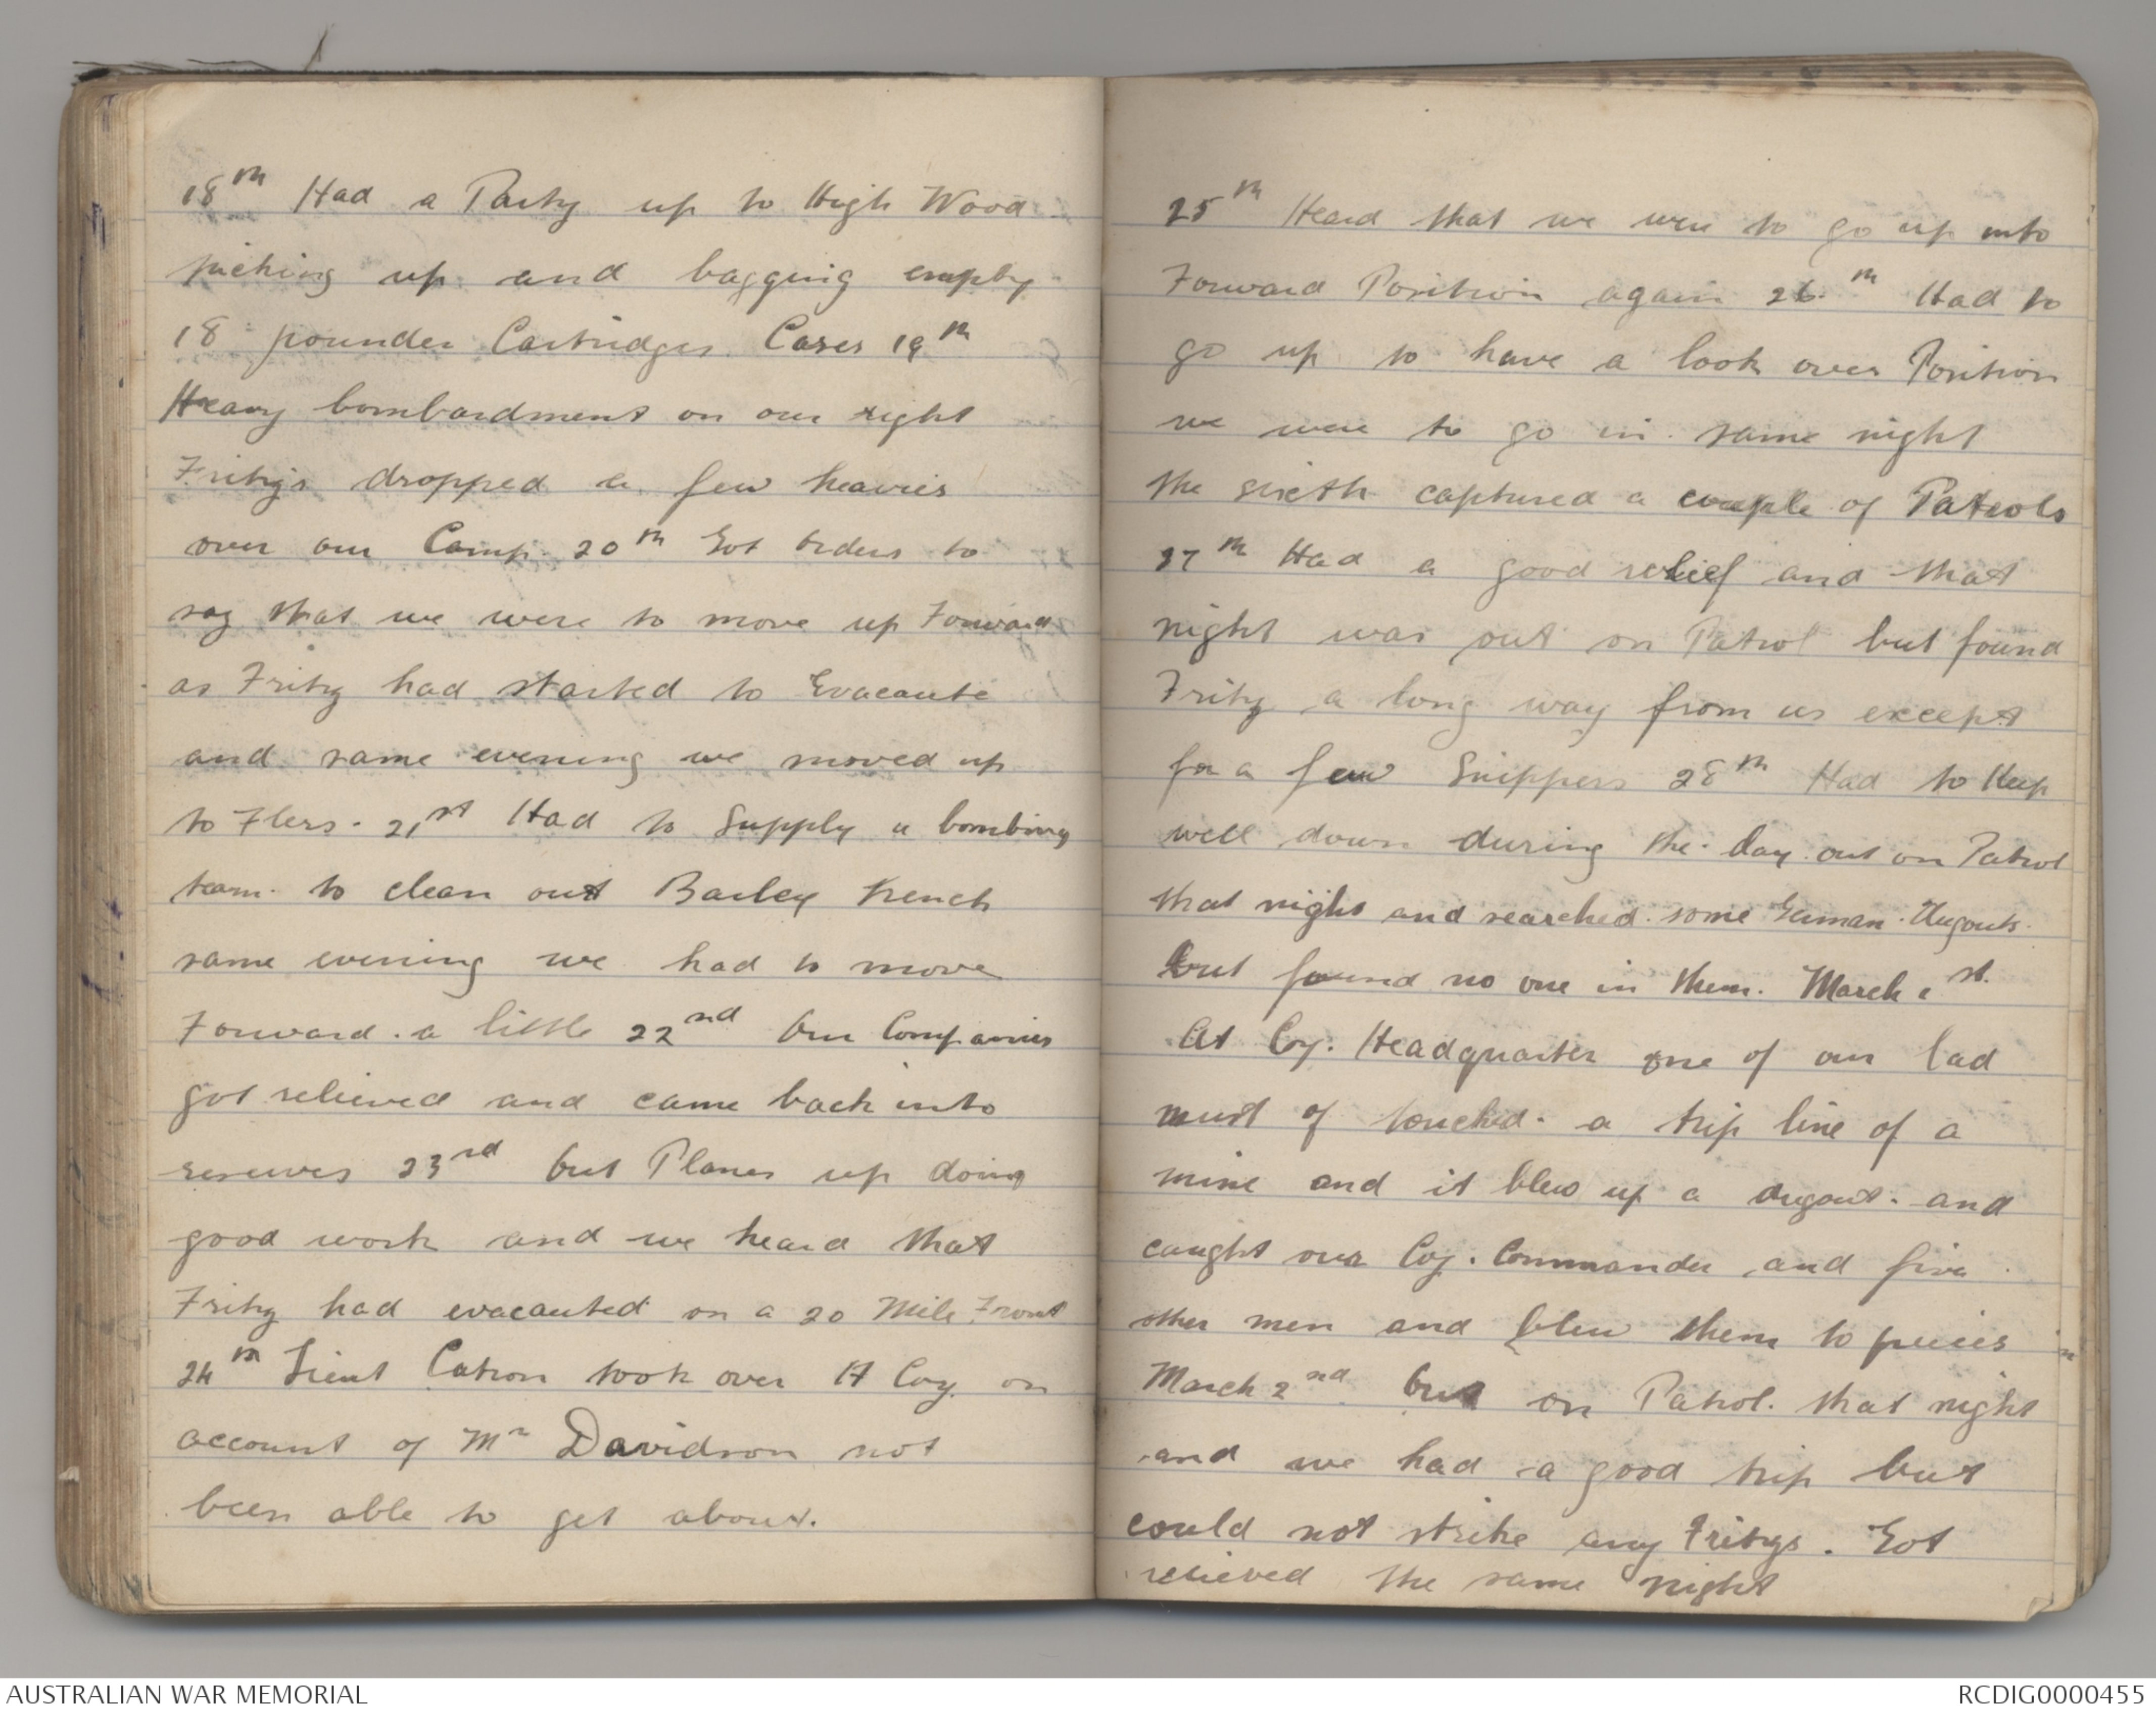 18th Had a Party up to High Wood
picking up and bagging empty
18 pounder Cartridges Cases 19th
Heavy bombardment on our right
Fritzs dropped a few heavies
over our Camp. 20th Got orders to
say that we were to move up Forward
as Fritz had started to Evacaute
and same evening we moved up
to Flers. 21st Had to Supply a bombing
team to clean out Barley trench
same evening we had to move
Forward a little 22nd Our Companies
got relieved and came back into
reserves 23rd Our Planes up doing
good work and we heard that
Fritz had evacauted on a 20 Mile Front
24th Lieut Catron took over A Coy. on
account of Mr Davidson not
been able to get about.
25th Heard that we were to go up into
Forward Position again 26th Had to
go up to have a look over Position
we were to go in same night
the sixth captured a couple of Patrols
27th Had a good relief and that
night was out on Patrol but found
Fritz a long way from us except
for a few Snippers 28th Had to Keep
well down during the day out on Patrol
that night and searched some German Dugouts.
but found no one in them. March 1st.
At Coy. Headquarter one of our lad
must of touched a trip line of a
mine and it blew up a dugout. and
caught our Coy. Commander and five
other men and blew them to pieces
March 2nd Out on Patrol. that night
and we had a good trip but
could not strike any Fritzs. Got
relieved the same night
AUSTRALIAN WAR MEMORIAL
RCDIG0000455